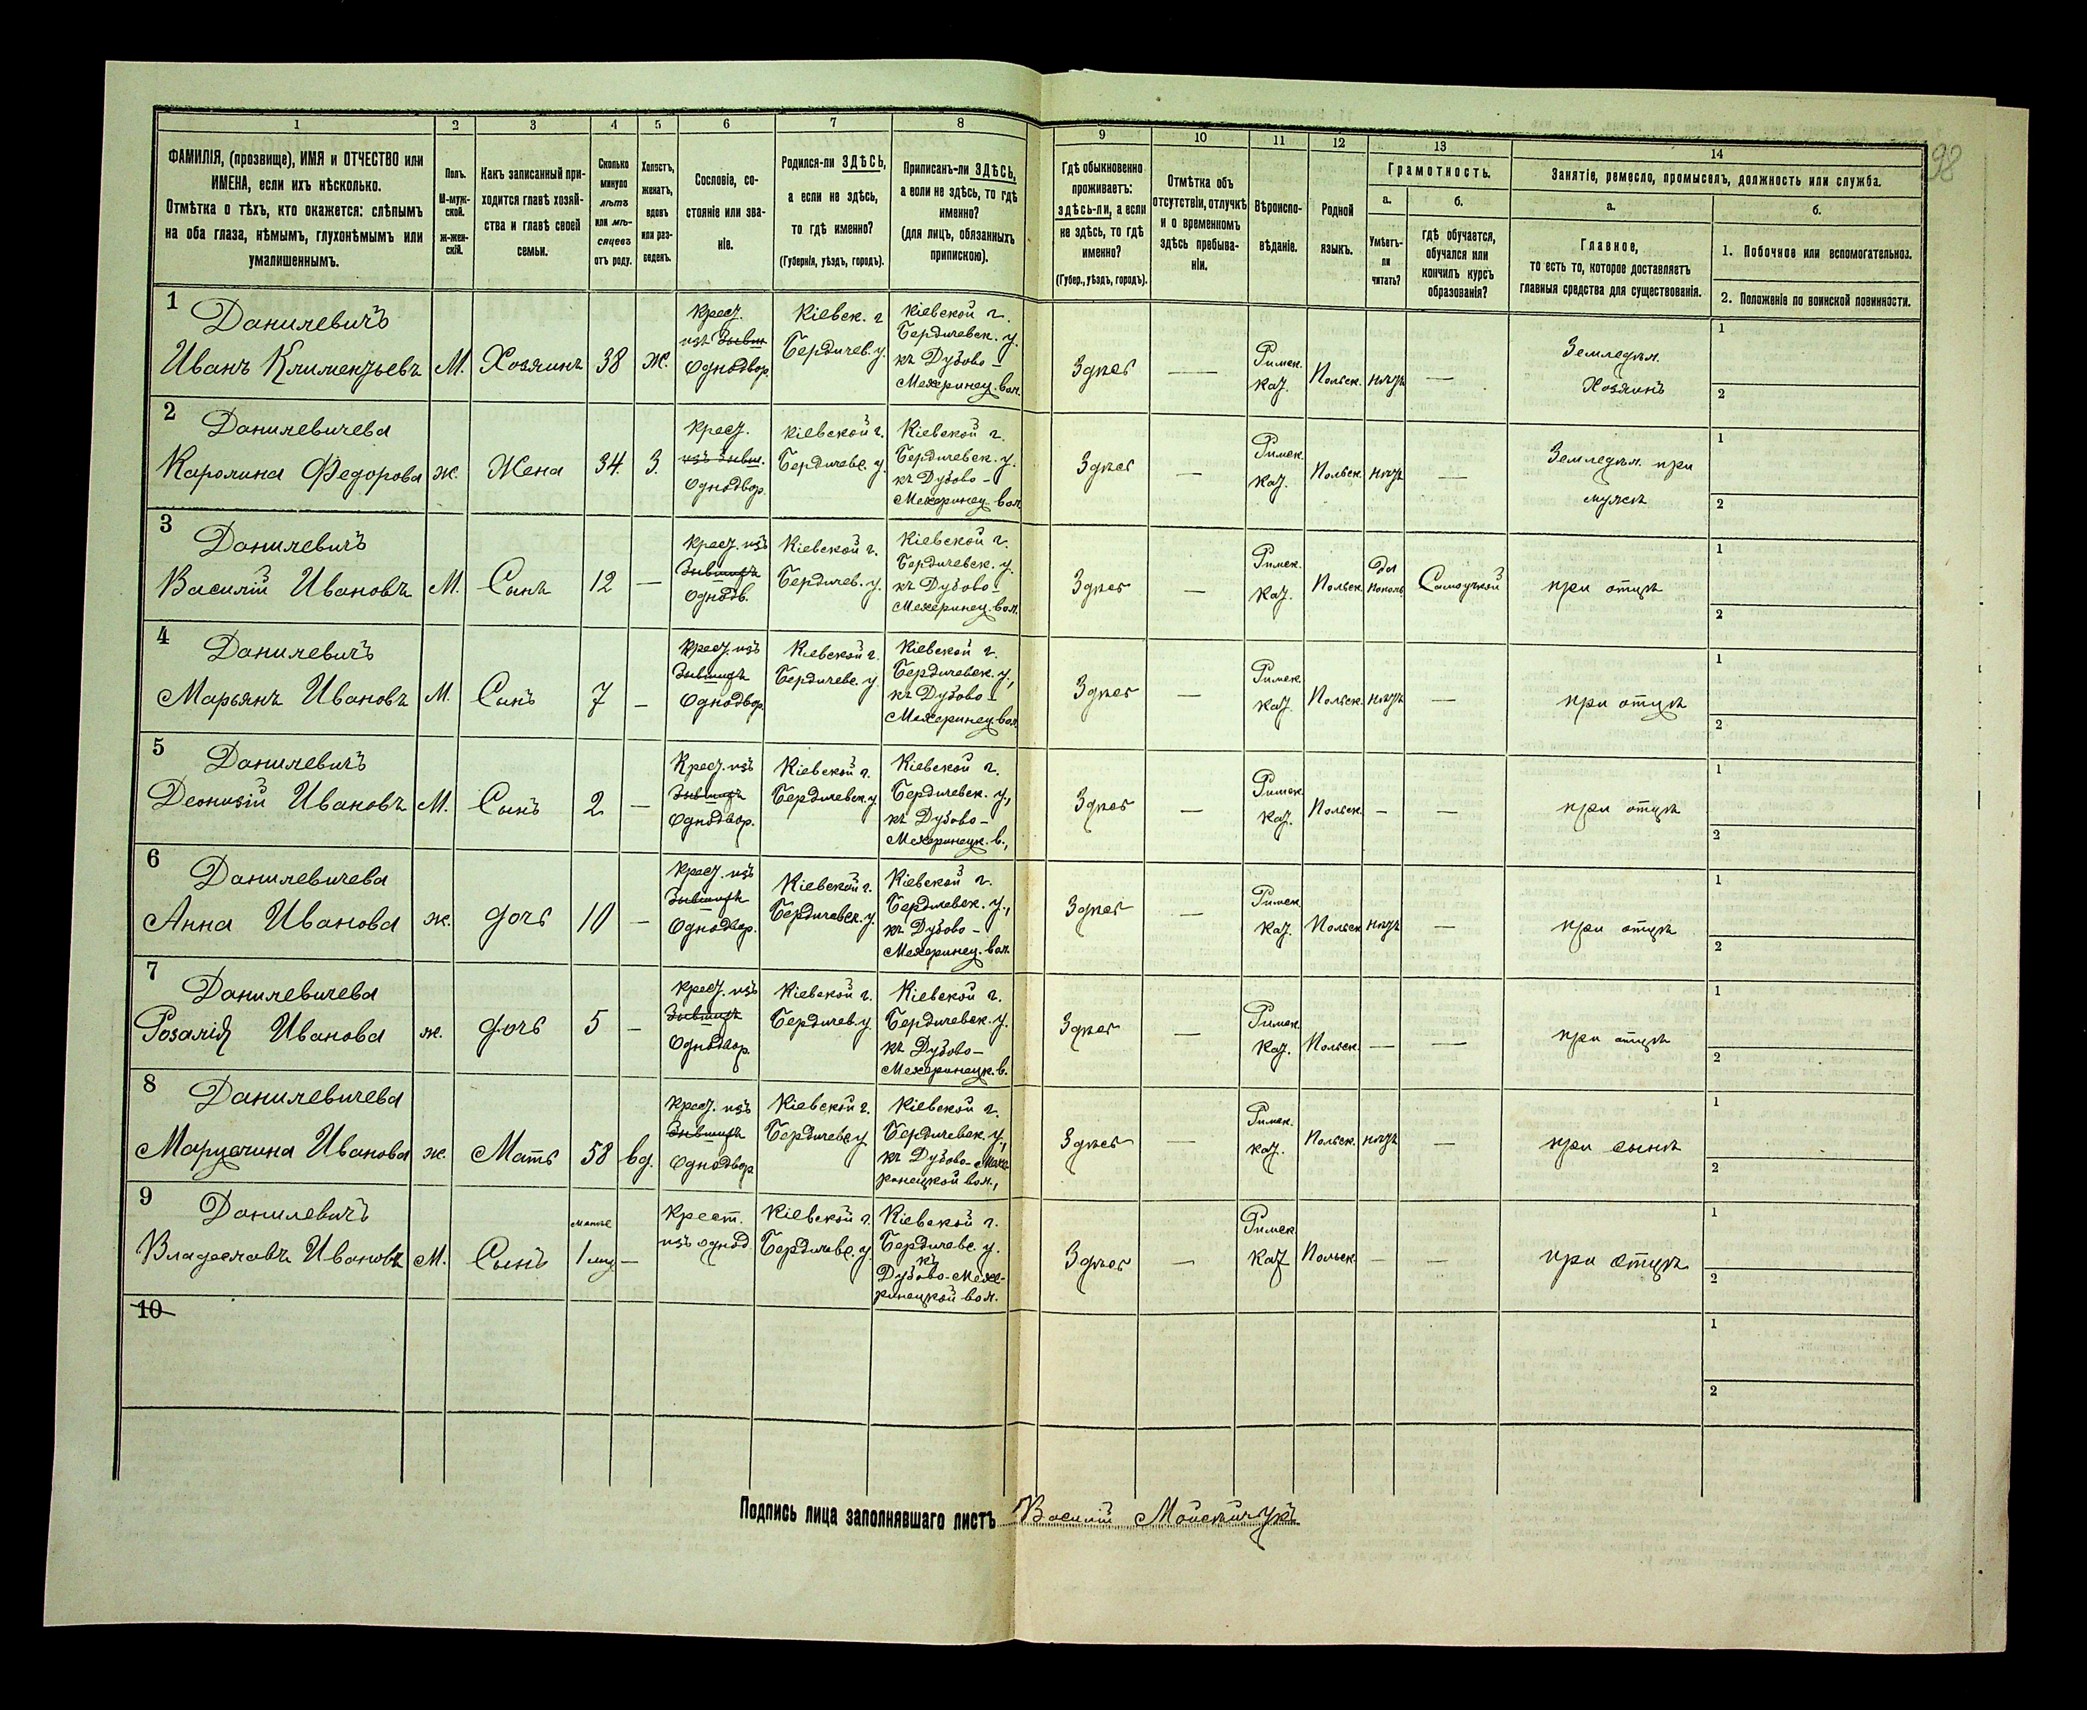 1
2
3
4
5
6
7
8
9
10
11
12
13
14
98
ФАМИЛІЯ, (прозвище), ИМЯ и ОТЧЕСТВО или
ИМЕНА, если ихъ нѣсколько.
Отмѣтка о тѣхъ, кто окажется: слѣпымъ
на оба глаза, нѣмымъ, глухонѣмымъ или
умалишеннымъ.
Полъ.
М-муж-
ской.
ж-жен-
скій.
Какъ записанный при-
ходится главѣ хозяй-
ства и главѣ своей
семьи.
Сколько
минуло
лѣтъ
или мѣ-
сяцевъ
отъ роду.
Холостъ,
женатъ,
вдовъ
или раз-
веденъ.
Сословіе, со-
стояніе или зва-
ніе.
Родился-ли ЗДѢСЬ,
а если не здѣсь,
то гдѣ именно?
(Губернія, уѣздъ, городъ).
Приписанъ-ли ЗДѢСЬ,
а если не здѣсь, то гдѣ
именно?
(для лицъ, обязанныхъ
припискою).
Гдѣ обыкновенно
проживаетъ:
здѣсь-ли, а если
не здѣсь, то гдѣ
именно?
(Губер., уѣздъ, городъ).
Отмѣтка объ
отсутствіи, отлучкѣ
и о временномъ
здѣсь пребыва-
ніи.
Вѣроиспо-
вѣданіе.
Родной
языкъ.
Грамотность.
а.
Умѣетъ-
ли
читать?
б.
Гдѣ обучается,
обучался или
кончилъ курсъ
образованія?
Занятіе, ремесло, промыселъ, должность или служба.
а.
Главное,
то есть то, которое доставляетъ
главныя средства для существованія.
б.
1. Побочное или вспомогательное.
2. Положеніе по воинской повинности.
1
Данилевичъ
Иванъ Климентьевъ М. Хозяинъ 38 Ж.
Крест.
изъ бывш.
Однодвор.
Кіевск. г.
Бердичев. у.
Кіевской г.
Бердичевск. у.
къ Дубово-
Мехеринец. вол.
Здѣсь —
Римск.
Кат.
Польск. нѣтъ —
Земледѣл.
Хозяинъ
1
2
2
Данилевичева
Каролина Федорова ж. Жена 34 З.
Крест.
изъ бывш.
Однодвор.
Кіевской г.
Бердичевс. у.
Кіевской г.
Бердичевск. у.
къ Дубово-
Мехеринец. вол.
Здѣсь —
Римск.
Кат.
Польск. нѣтъ —
Земледѣл. при
мужѣ
1
2
3
Данилевичъ
Василій Ивановъ М. Сынъ 12 —
Крест. изъ
бывшихъ
Однодв.
Кіевской г.
Бердичев. у.
Кіевской г.
Бердичевск. у.
къ Дубово-
Мехеринец. вол.
Здѣсь —
Римск.
Кат.
Польск.
да
Самоучкой
при отцѣ
1
2
4
Данилевичъ
Марьянъ Ивановъ М. Сынъ 7 —
Крест. изъ
бывшихъ
Однодвор.
Кіевской г.
Бердичевс. у.
Кіевской г.
Бердичевск. у.,
къ Дубово-
Мехеринец. вол.
Здѣсь —
Римск.
Кат.
Польск. нѣтъ —
при отцѣ
1
2
5
Данилевичъ
Деонизій Ивановъ М. Сынъ 2 —
Крест. изъ
бывшихъ
Однодвор.
Кіевской г.
Бердичевск. у.
Кіевской г.
Бердичевск. у.,
къ Дубово-
Мехеринецк. в.,
Здѣсь —
Римск.
Кат.
Польск. — —
при отцѣ
1
2
6
Данилевичева
Анна Иванова ж. дочь 10 —
Крест. изъ
бывшихъ
Однодвор.
Кіевской г.
Бердичевск. у.
Кіевской г.
Бердичевск. у.,
къ Дубово-
Мехеринец. вол.
Здѣсь —
Римск.
Кат.
Польск. нѣтъ —
при отцѣ
1
2
7
Данилевичева
Розалія Иванова ж. дочь 5 —
Крест. изъ
бывшихъ
Однодвор.
Кіевской г.
Бердичев. у.
Кіевской г.
Бердичевск. у.
къ Дубово-
Мехеринецк. в.
Здѣсь —
Римск.
Кат.
Польск. — —
при отцѣ
1
2
8
Данилевичева
Марцелина Иванова ж. Мать 58 вд.
Крест. изъ
бывшихъ
Однодвор.
Кіевской г.
Бердичевс. у.
Кіевской г.
Бердичевск. у.,
къ Дубово-Мехе-
ринецкой вол.,
Здѣсь —
Римск.
Кат.
Польск. нѣтъ —
при сынѣ
1
2
9
Данилевичъ
Владиславъ Ивановъ М. Сынъ
менѣе
1 мѣс. —
Крест.
изъ однод.
Кіевской г.
Бердичевс. у.
Кіевской г.
Бердичевс. у.
къ
Дубово-Мехе-
ринецкой вол.
Здѣсь —
Римск.
Кат.
Польск. — —
при отцѣ
1
2
10
1
2
Подпись лица заполнявшаго листъ Василій